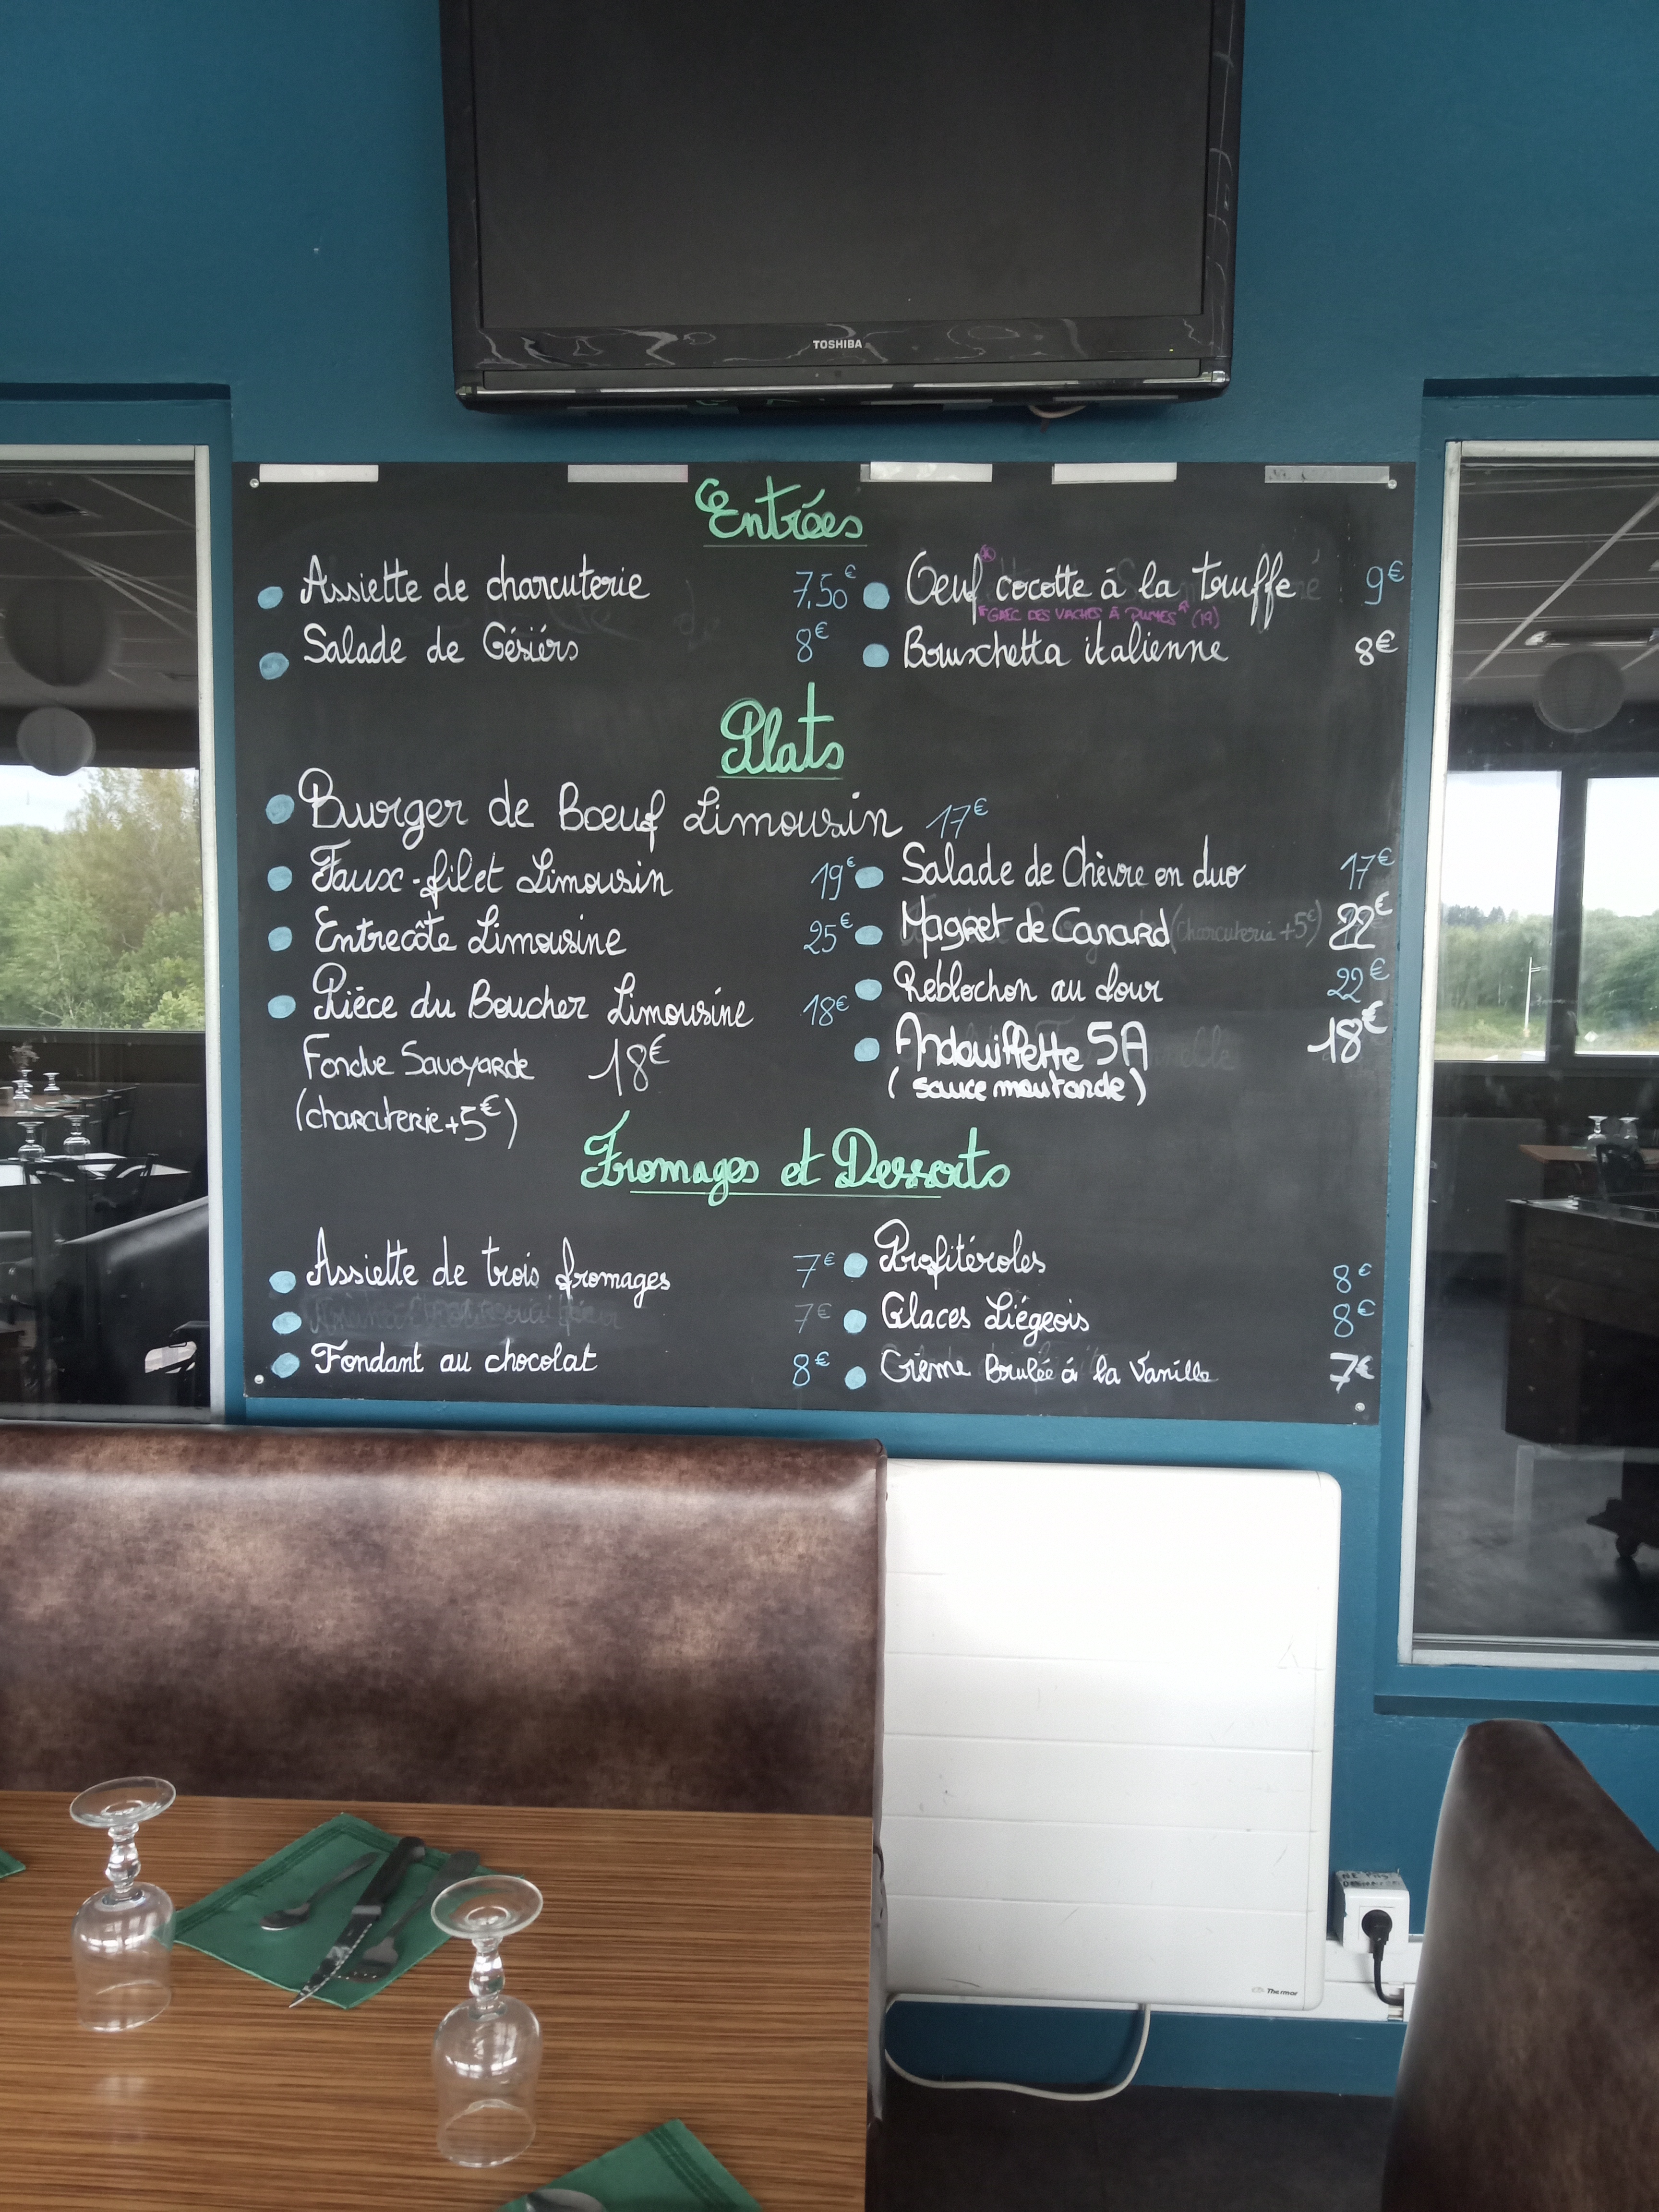 TOSHIBA
Entrées
Assiette de charcuterie 7,50€
Oeuf* cocotte à la truffe 9€
"GAEC DES VACHES À PLUMES" (19)
Salade de Gésiérs 8€
Bruschetta italienne 8€
Plats
Burger de Bœuf Limousin 17€
Faux-filet Limousin 19€
Salade de Chèvre en duo 17€
Entrecôte Limousine 25€
Magret de Canard (charcuterie +5€) 22€
Pièce du Boucher Limousine 18€
Reblochon au four 22€
Fondue Savoyarde 18€
(charcuterie +5€)
Andouillette 5A 18€
(sauce moutarde)
Fromages et Desserts
Assiette de trois fromages 7€
Profitéroles 8€
7€
Glaces Liégeois 8€
Fondant au chocolat 8€
Crème Brulée à la Vanille 7€
Thermor